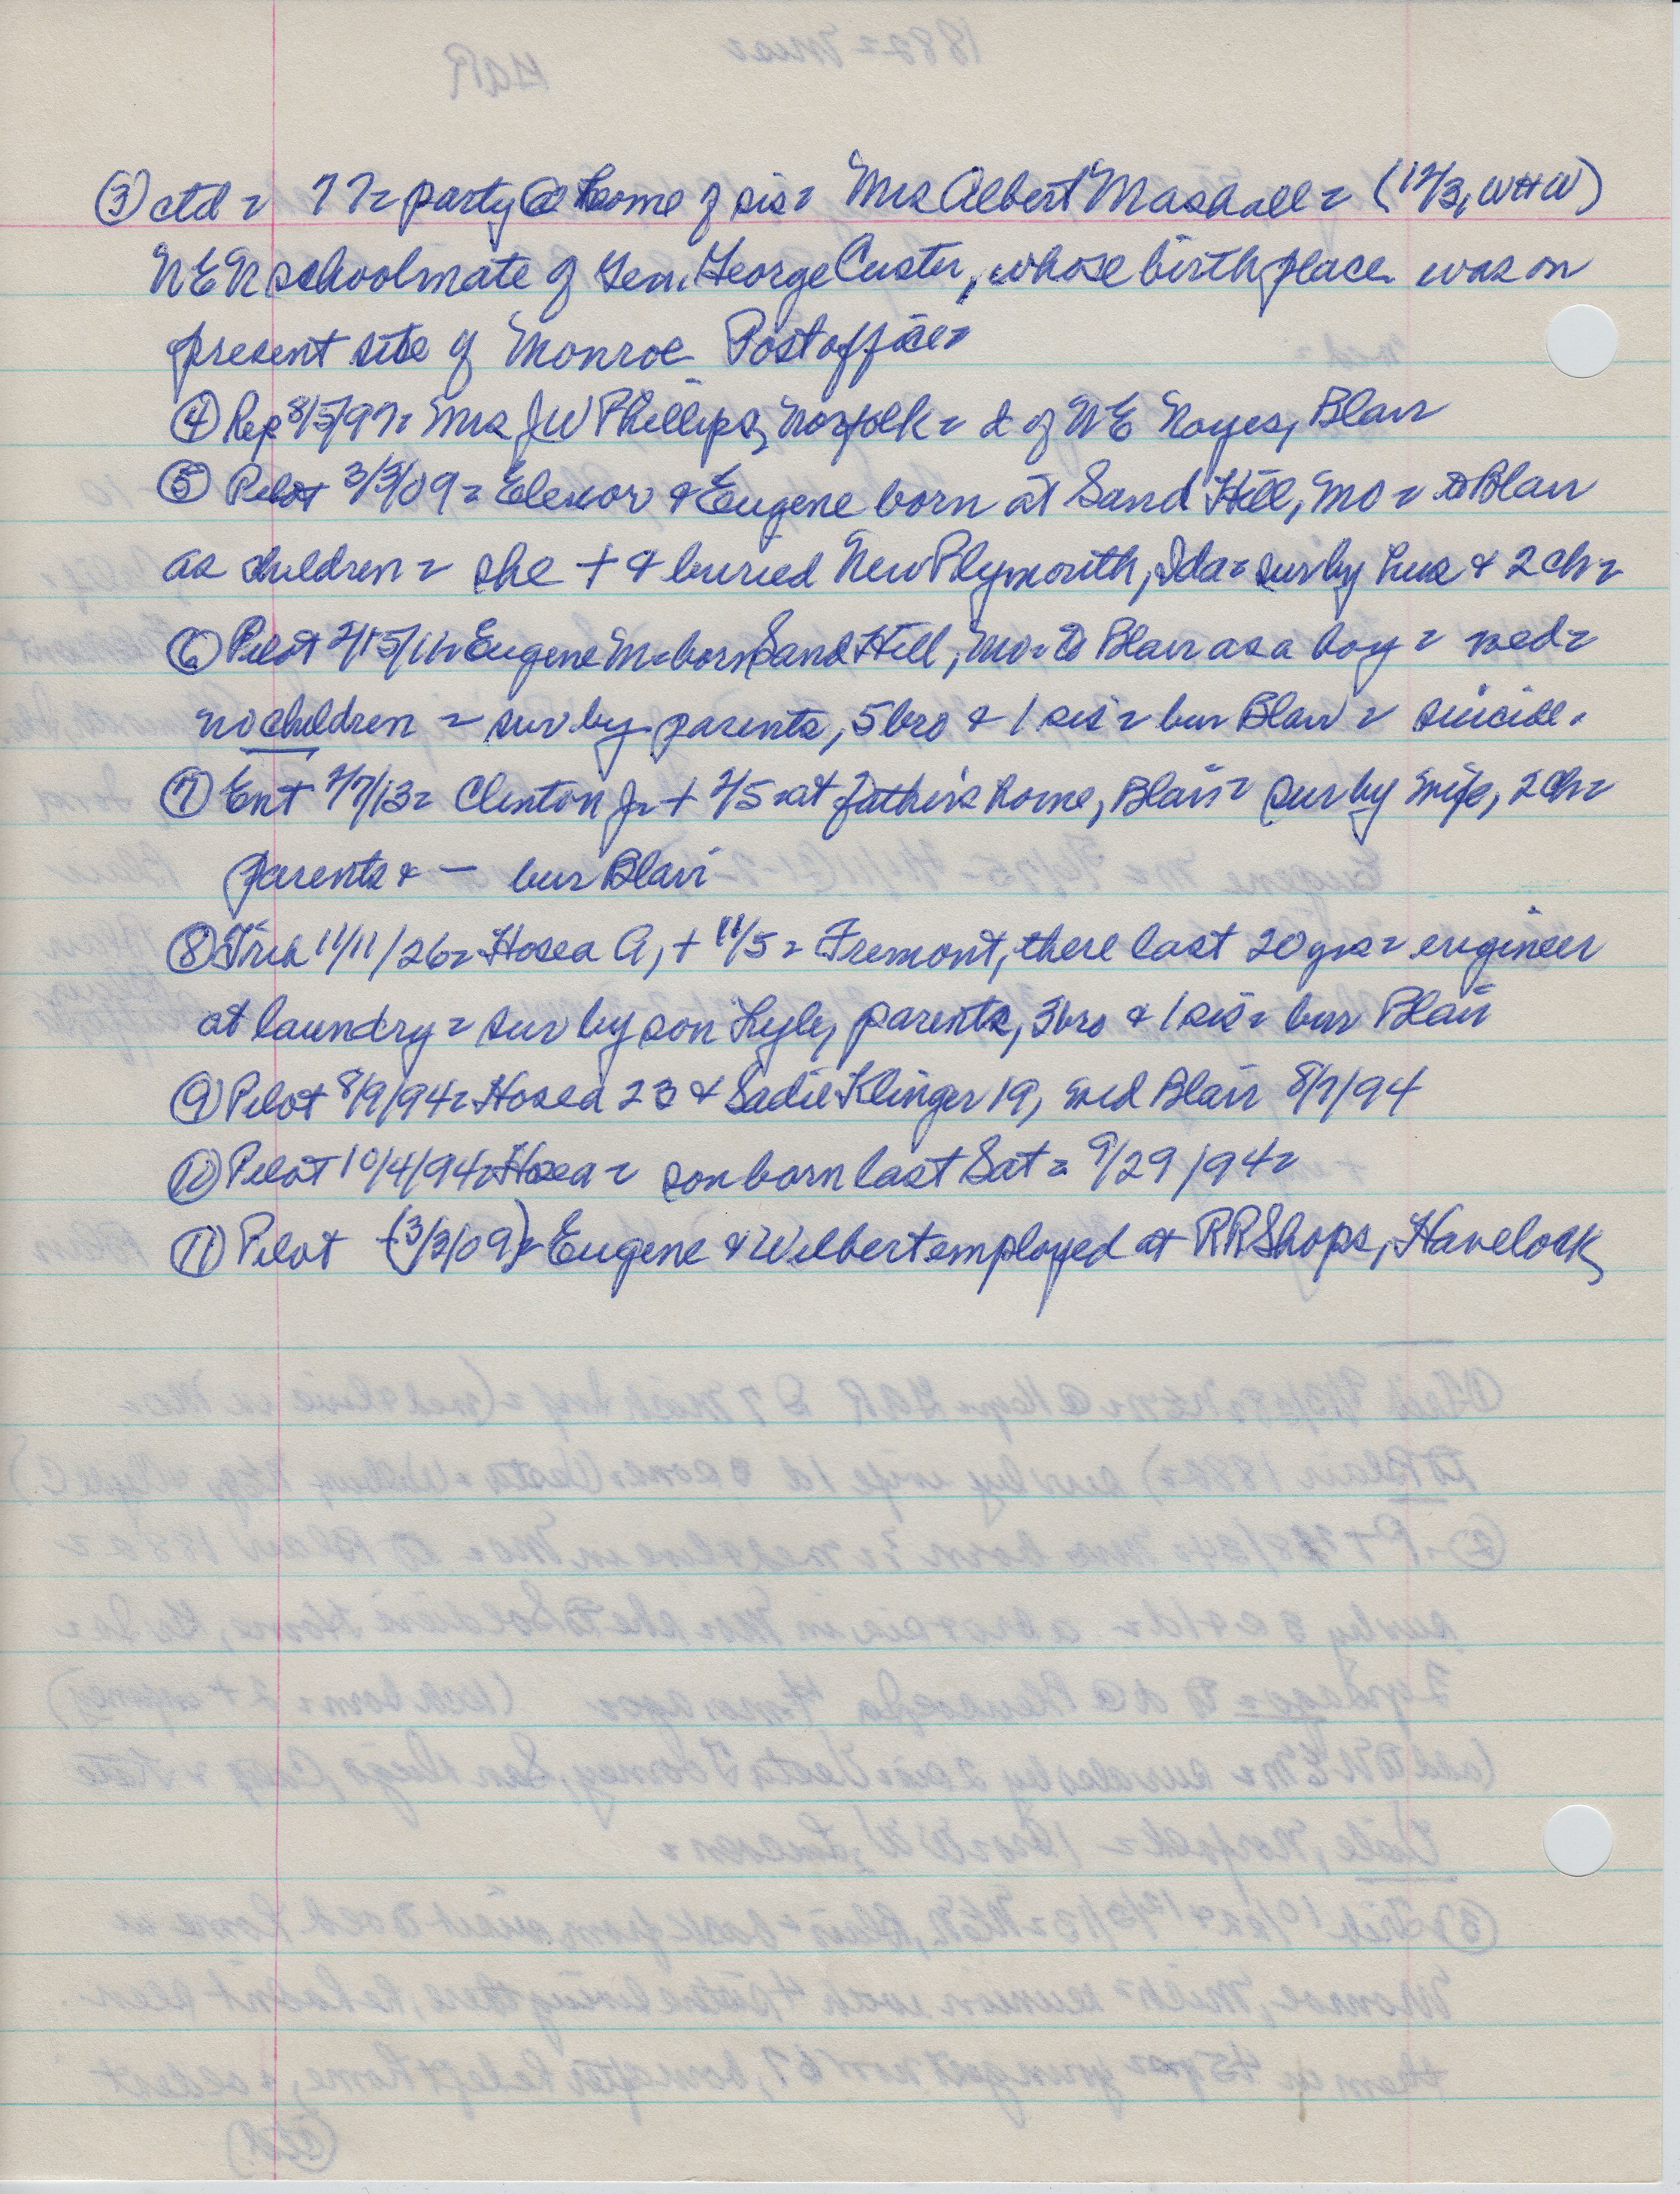 ③ ctd = 77 = party @ home of sis = Mrs Albert Mashall = (12/3, WHW)
NEN schoolmate of Gen. George Custer, whose birthplace was on
present site of Monroe Postoffice =
④ Rep 8/5/97 = Mrs JW Phillips, Norfolk = d of NE Noyes, Blair
⑤ Pilot 3/3/09 = Elenor & Eugene born at Sand Hill, Mo = to Blair
as children = she + & buried New Plymouth, Ida = sur by hus & 2 ch =
⑥ Pilot 2/15/11 = Eugene M = born Sand Hill, Mo = to Blair as a boy =
no children = sur by parents, 5 bro & 1 sis = bur Blair = suicide.
⑦ Ent 2/7/13 = Clinton Jr + 2/5 = at father's home, Blair = sur by wife, 2 ch =
parents & — bur Blair
⑧ Trib 11/11/26 = Hosea A, + 11/5 = Fremont, there last 20 yrs = engineer
at laundry = sur by son Lyle, parents, 3 bro & 1 sis = bur Blair
⑨ Pilot 8/9/94 = Hosea 23 & Sadie Klinger 19, med Blair 8/7/94
⑩ Pilot 10/4/94 = Hosea = son born last Sat = 9/29/94 =
⑪ Pilot (3/3/09) = Eugene & Wilbert employed at RR Shops, Havelock